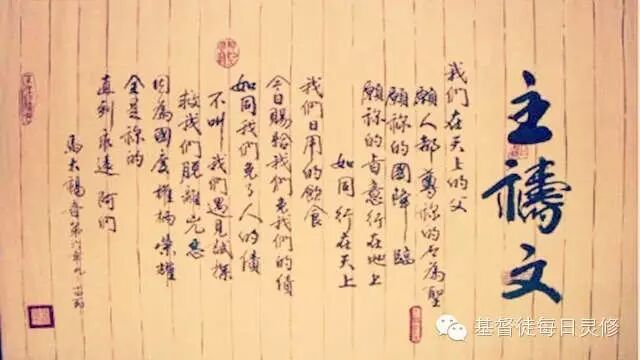 主禱文
我們在天上的父
願人都尊祢的名為聖
願祢的國降臨
願祢的旨意行在地上
如同行在天上
我們日用的飲食
今日賜給我們免我們的債
如同我們免了人的債
不叫我們遇見試探
救我們脫離兇惡
因為國度權柄榮耀
全是祢的
直到永遠 阿們
馬太福音第六章九
基督徒每日灵修